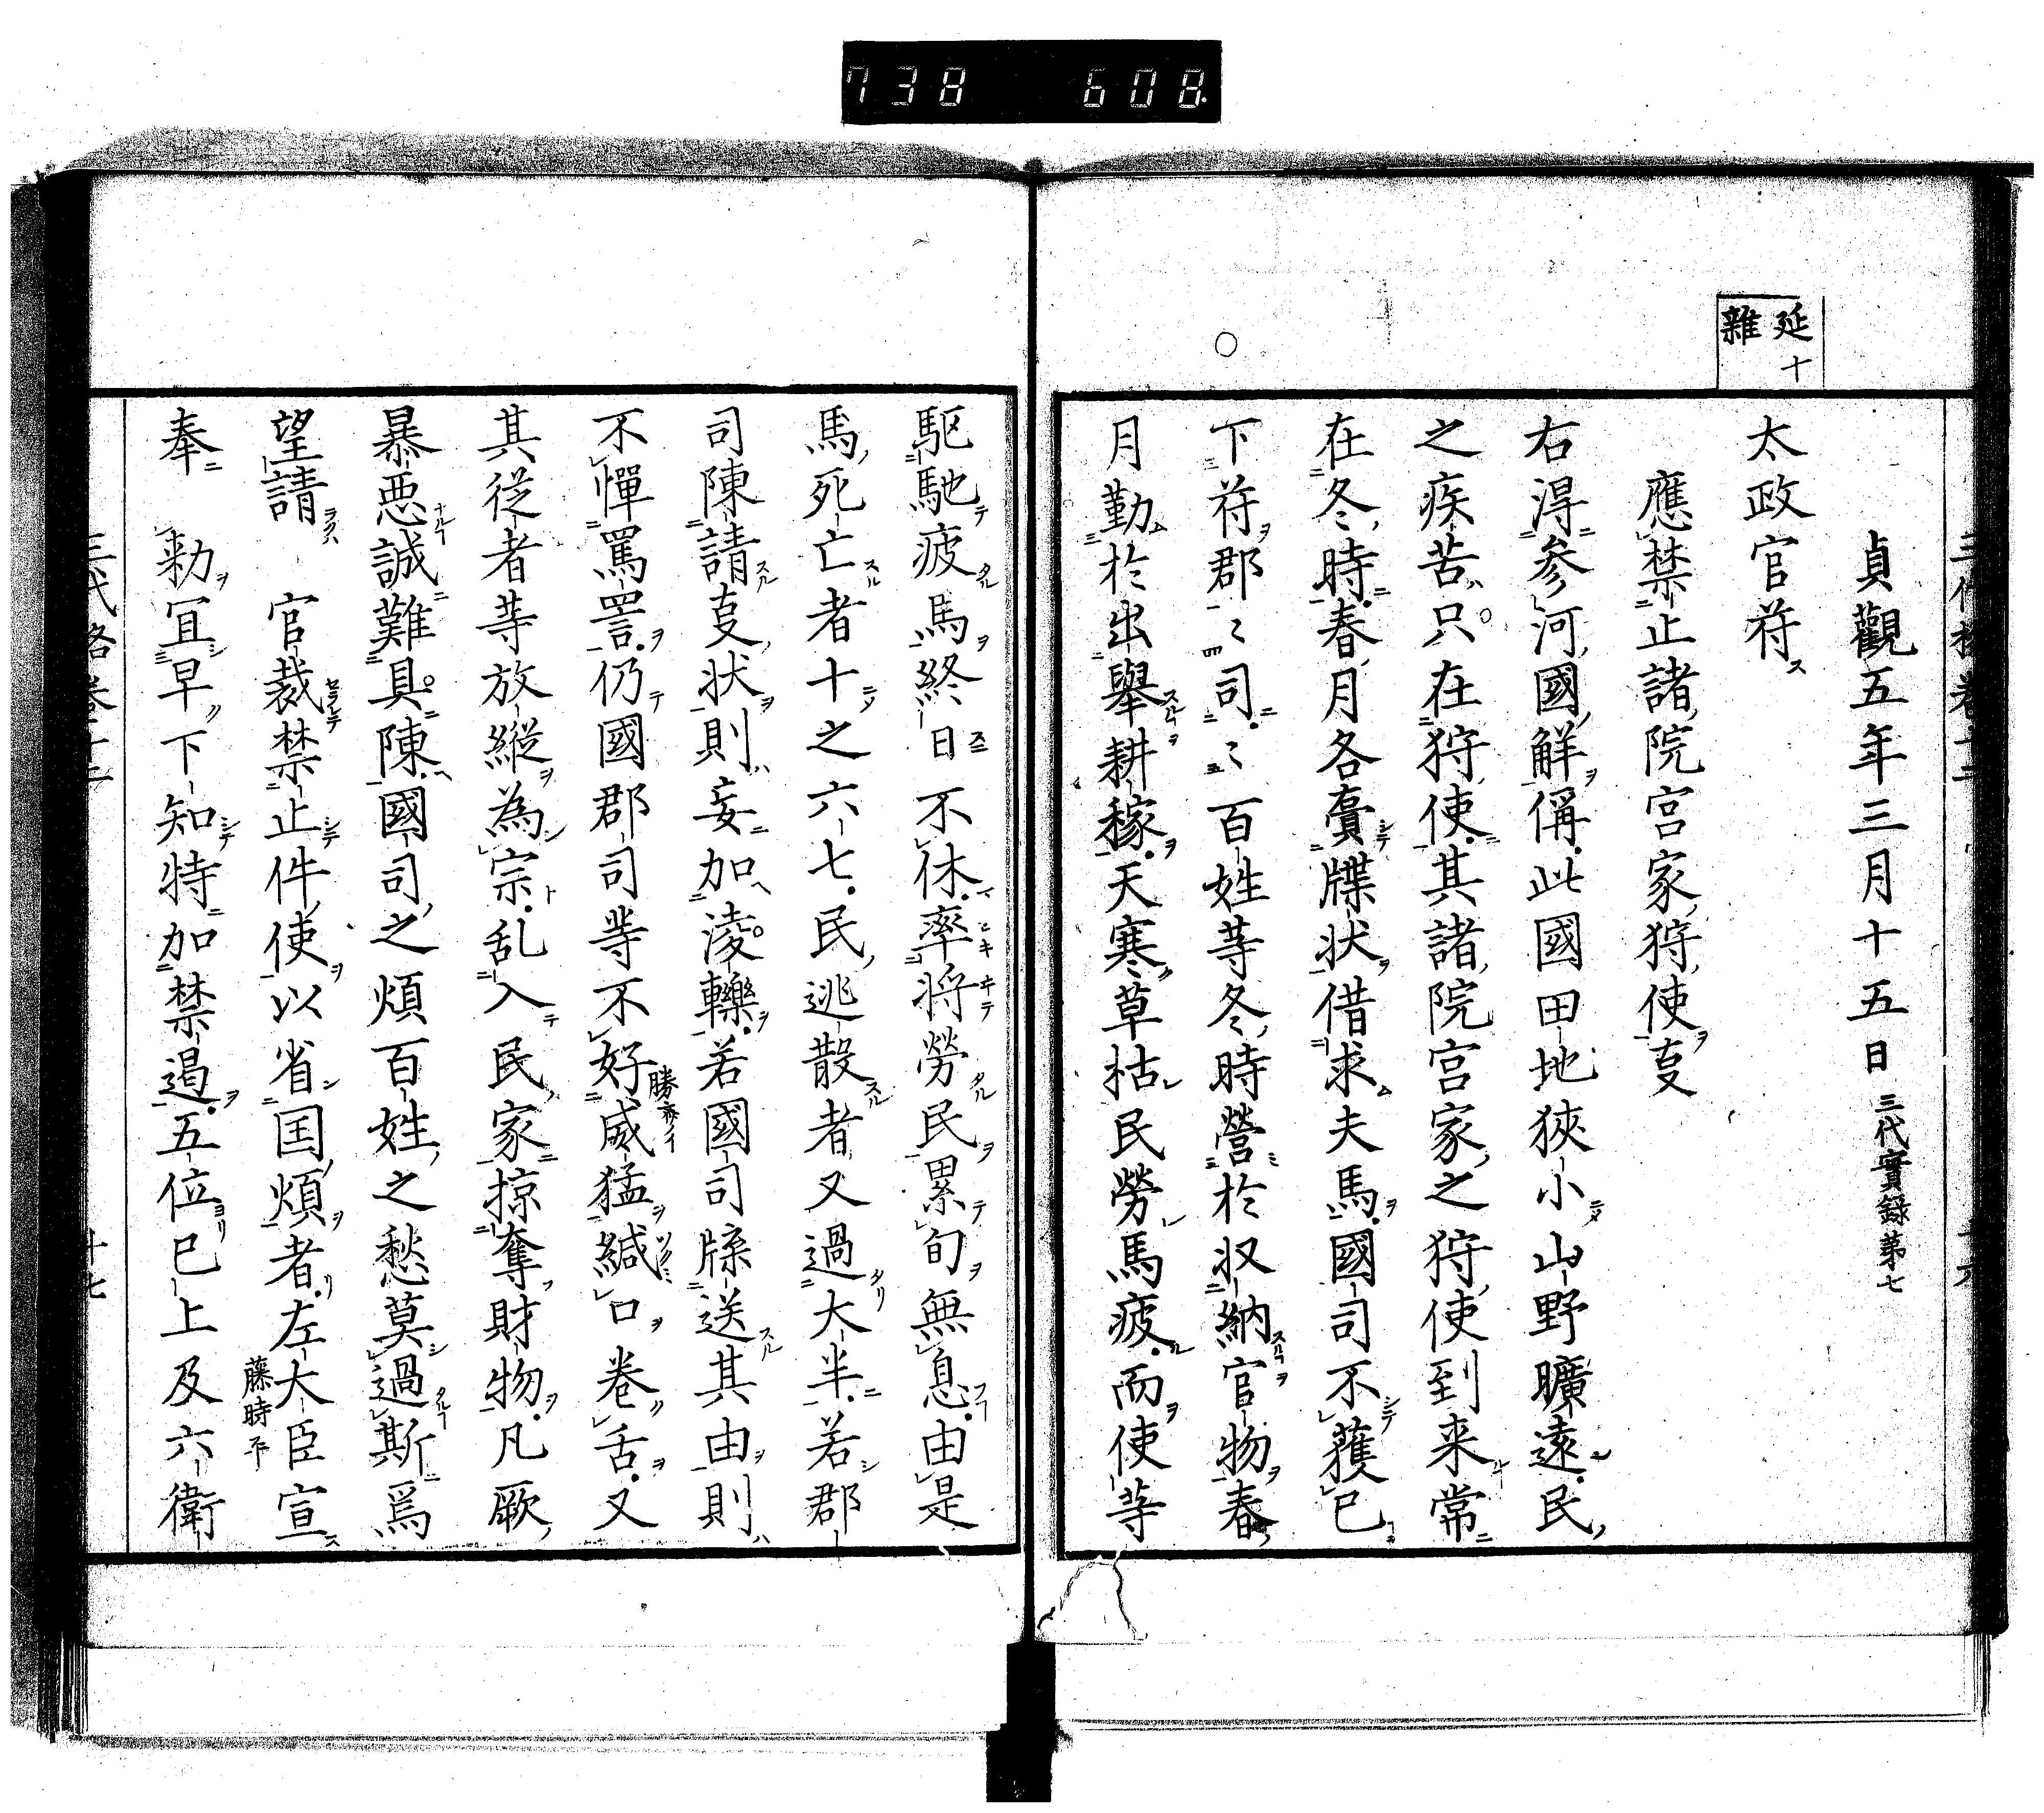 738 608
延十
雜
貞觀五年三月十五日 三代實録第七
太政官符
應禁止諸院宮家狩使叓
右淂参河國觧偁此國田地狹小山野曠遠民
之疾苦只在狩使其諸院宮家之狩使到来常
在冬時春月各賷牒状借求夫馬國司不獲已
下符郡〻司〻百姓等冬時營於収納官物春
月勤於出舉耕稼天寒草枯民勞馬疲而使等
駈馳疲馬終日不休率将勞民累旬無息由是
馬死亡者十之六七民逃散者又過大半若郡
司陳請叓状則妄加淩轢若國司牒送其由則
不憚罵詈仍國郡司等不好威猛緘口巻舌又
其従者等放縦為宗乱入民家掠奪財物凡厥
暴悪誠難具陳國司之煩百姓之愁莫過斯焉
望請 官裁禁止件使以省国煩者左大臣宣
藤時平
奉 勅宜早下知特加禁遏五位已上及六衛
三代格巻十
十七